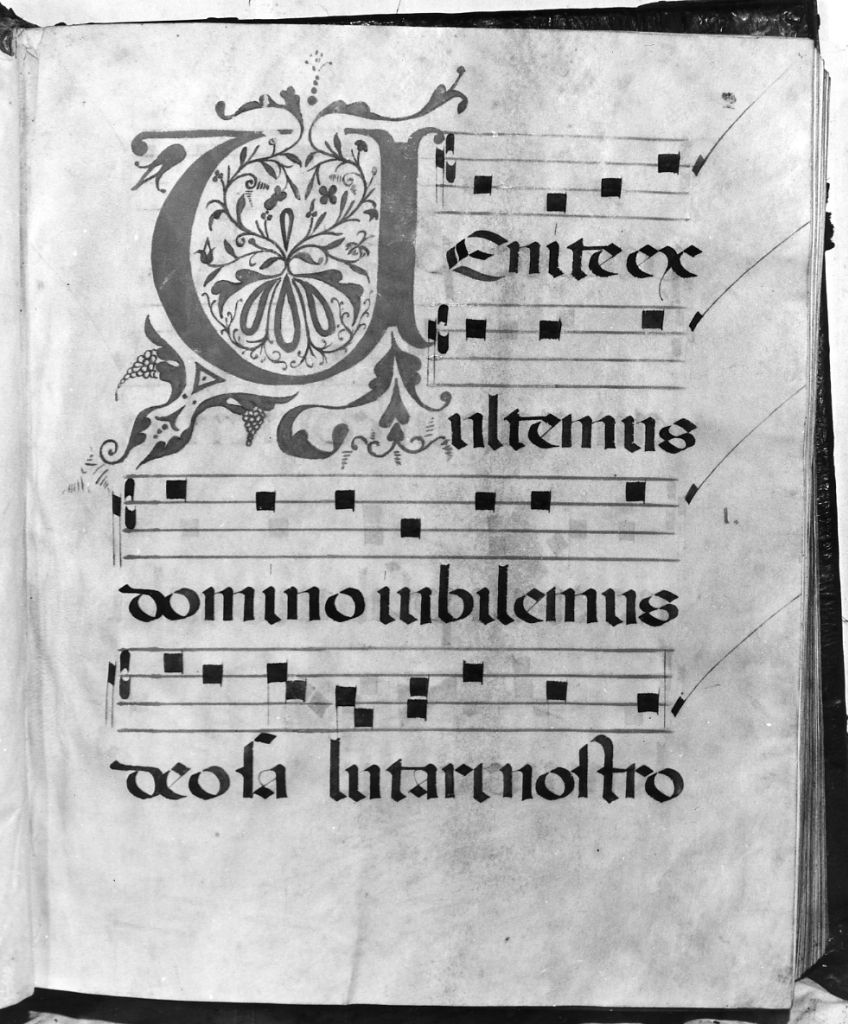 VEnite ex
ultemus
domino iubilemus
deo sa lutari nostro